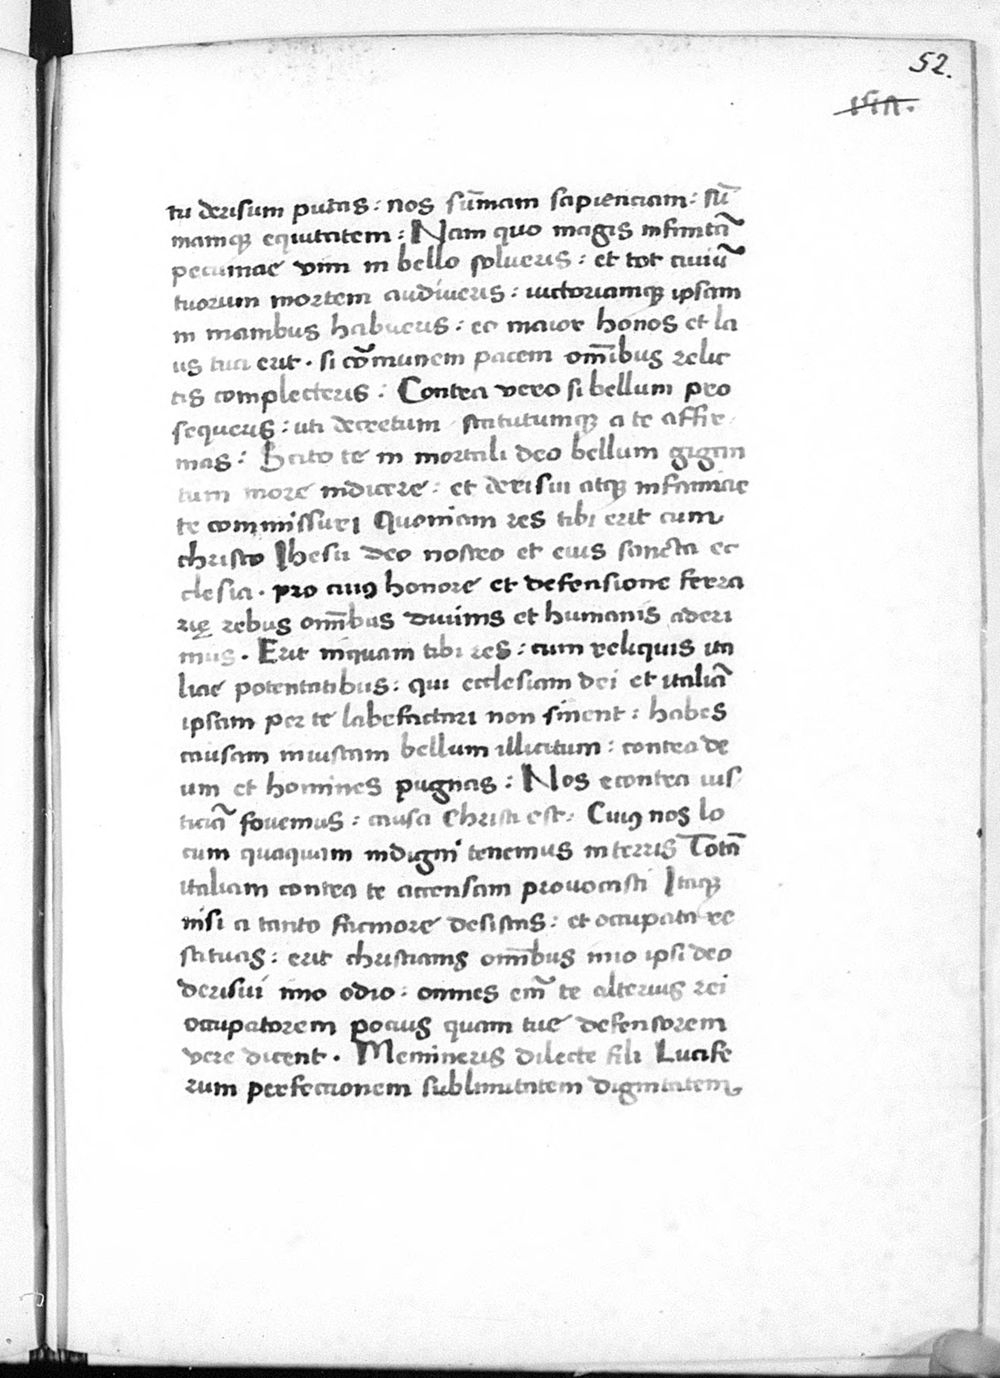 52.
tu derisum putas : nos sūmam sapienciam : sū
mamqꝫ equitatem : Nam quo magis infinitā
pecuniae vim in bello solueris : et tot ciuiū
tuorum mortem audiueris : uictoriamqꝫ ipsam
in manibus habueris : eo maior honos et la
us tua erit . si cōmunem pacem om̄ibus relic
tis complecteris : Contra vero si bellum pro
sequeris : uti decretum statutumqꝫ a te affir
mas : Scito te in mortali deo bellum gigan
tum more indicere : et derisui atqꝫ infamiae
te commissuri Quoniam res tibi erit cum
christo Ihesu deo nostro et eius sancta ec
clesia . pro cuiꝰ honore et defensione ferra
rię rebus om̄ibus diuinis et humanis aderi
mus . Erit inquam tibi res : cum reliquis ita
liae potentatibus : qui ecclesiam dei et italiā
ipsam per te labefactari non sinent : habes
causam iniustam bellum illicitum : contra de
um et homines pugnas : Nos econtra ius
ticiā fouemus : causa Christi est : Cuiꝰ nos lo
cum quaquam indigni tenemus in terris Totā
italiam contra te accensam prouocasti Itaqꝫ
nisi a tanto facinore desistas : et occupata re
stituas : erit christianis om̄ibus imo ipsi deo
derisui imo odio : omnes em̄ te alterius rei
occupatorem pocius quam tue defensorem
vere dicent . Memineris dilecte fili Lucife
rum perfectionem sublimitatem dignitatem